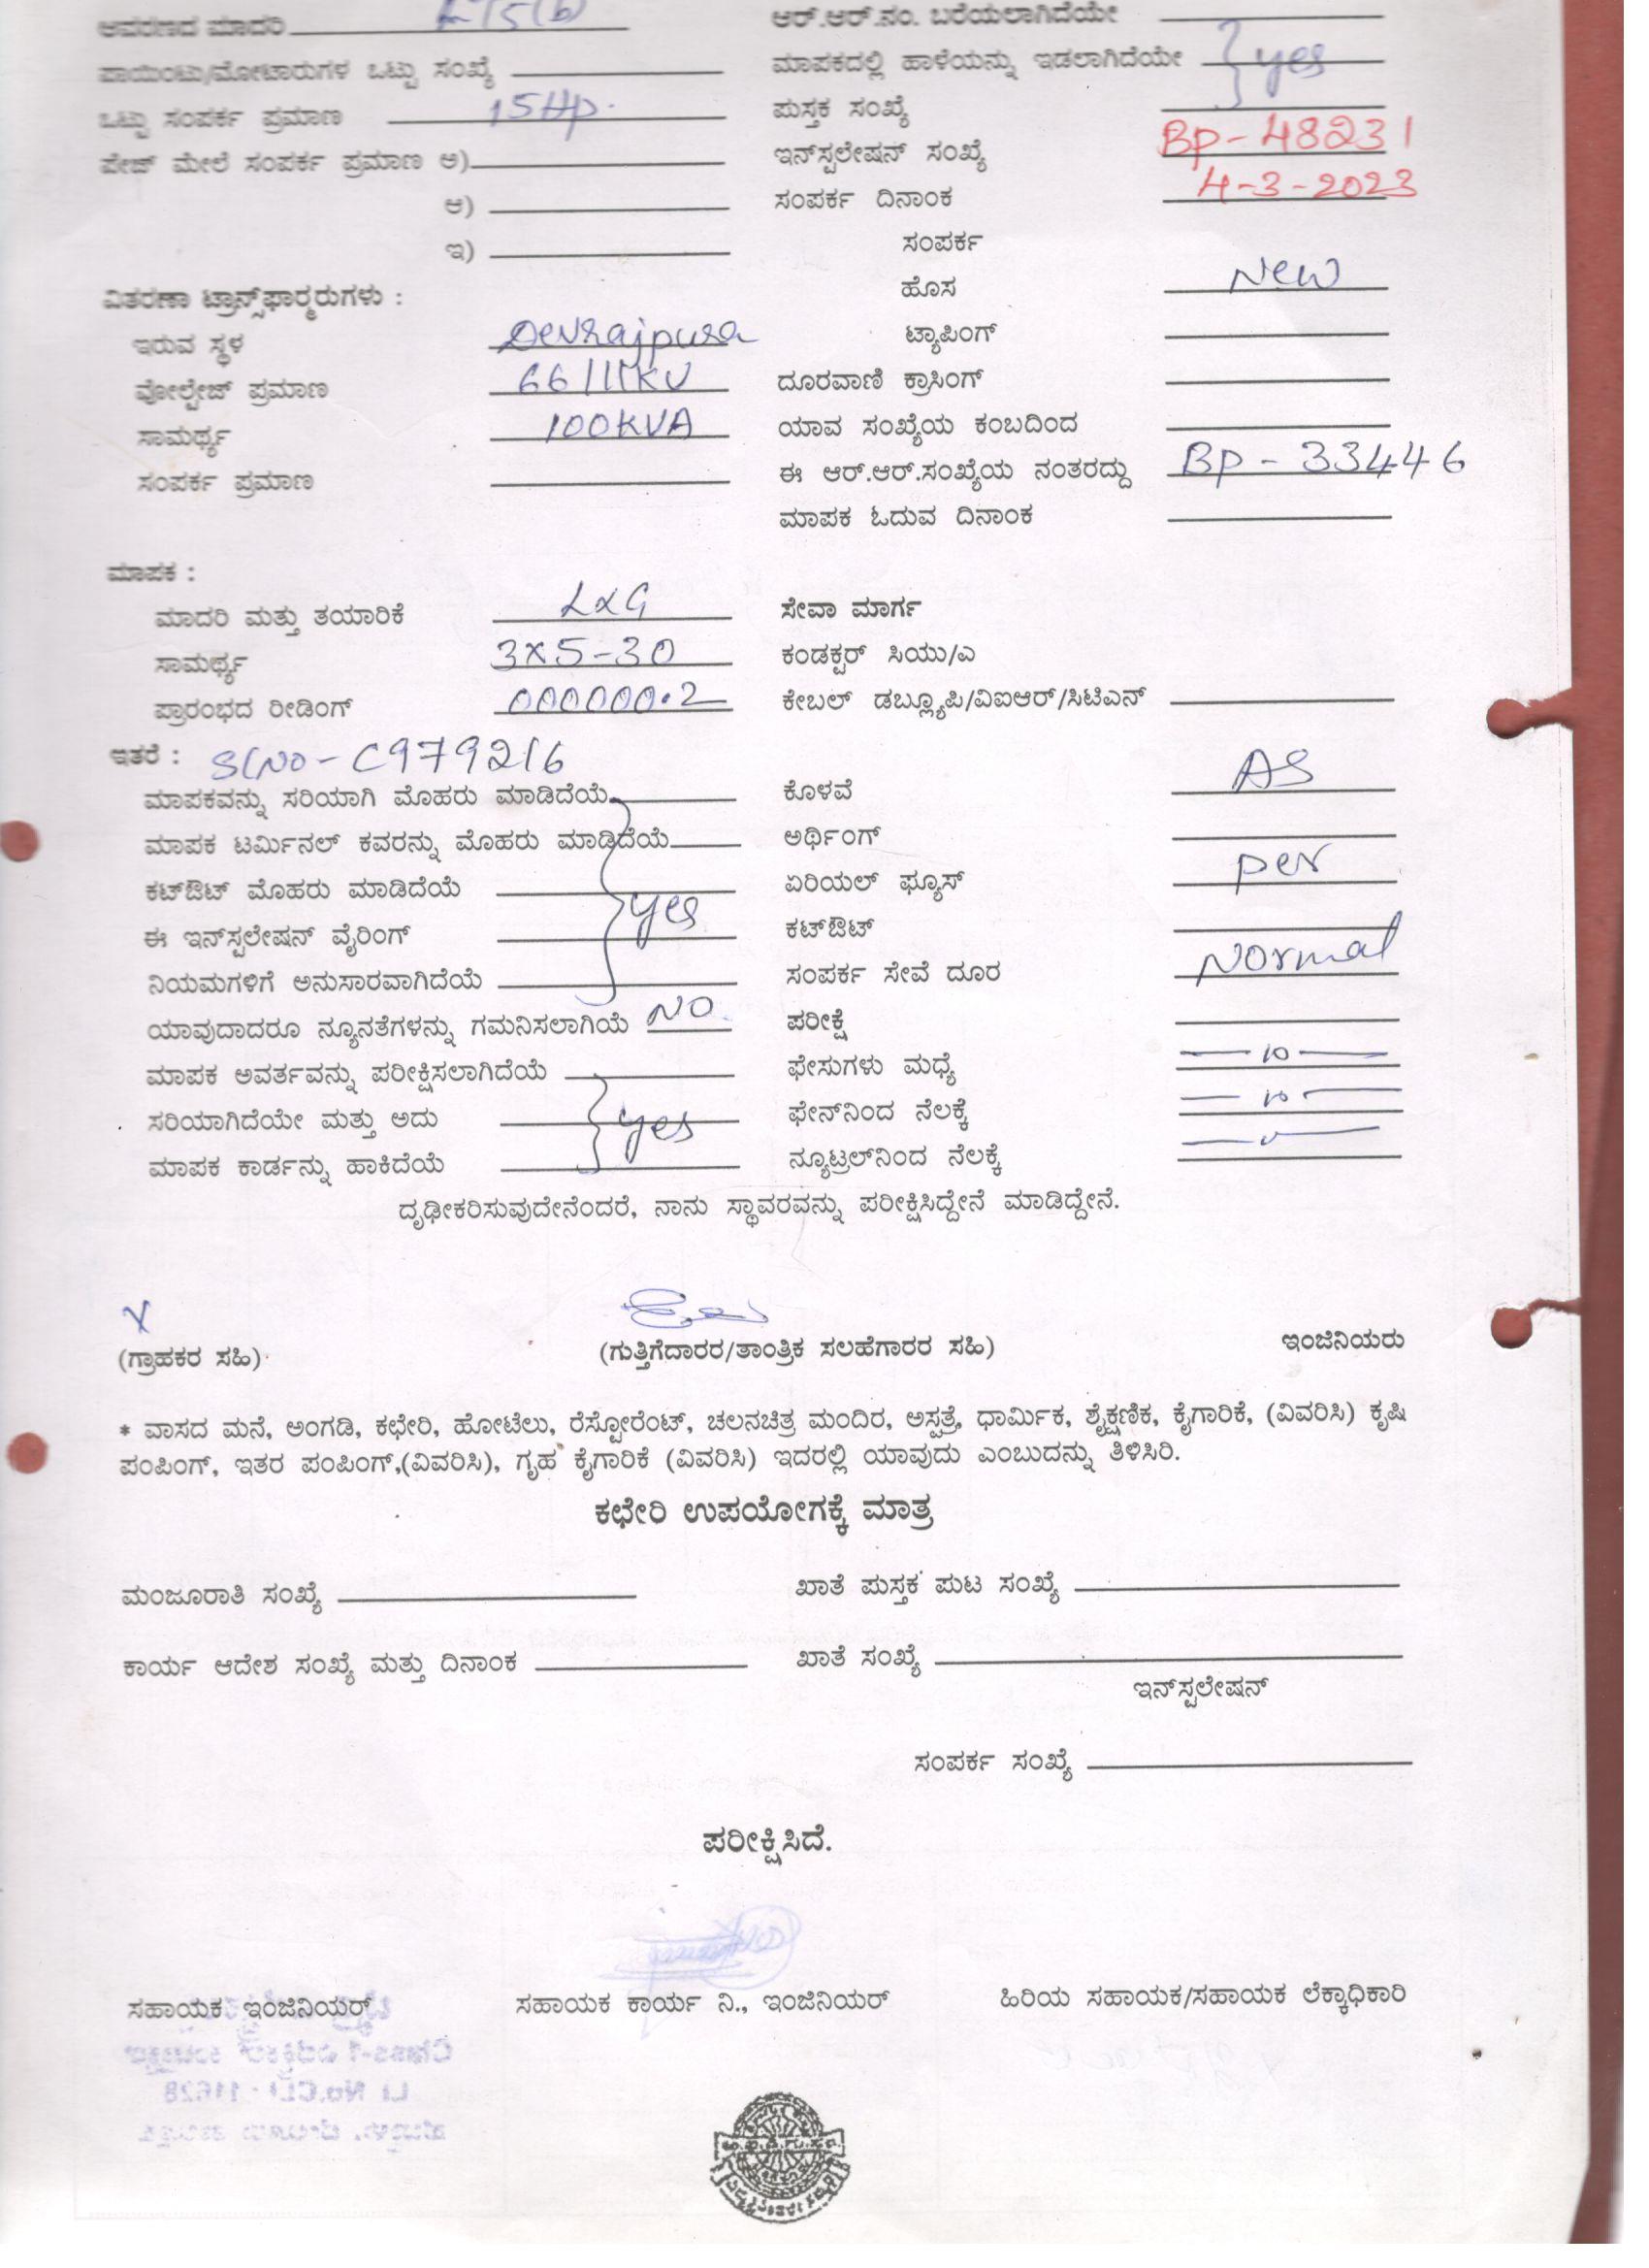 ಆವರಣದ ಮಾದರಿ LT5(b)
ಪಾಯಿಂಟು/ಮೋಟಾರುಗಳ ಒಟ್ಟು ಸಂಖ್ಯೆ
ಒಟ್ಟು ಸಂಪರ್ಕ ಪ್ರಮಾಣ 15Hp.
ಪೇಜ್ ಮೇಲೆ ಸಂಪರ್ಕ ಪ್ರಮಾಣ ಅ)
ಆ)
ಇ)
ವಿತರಣಾ ಟ್ರಾನ್ಸ್‌ಫಾರ್ಮರುಗಳು :
ಇರುವ ಸ್ಥಳ Devrajpura
ವೋಲ್ಟೇಜ್ ಪ್ರಮಾಣ 66/11KV
ಸಾಮರ್ಥ್ಯ 100KVA
ಸಂಪರ್ಕ ಪ್ರಮಾಣ
ಆರ್.ಆರ್.ನಂ. ಬರೆಯಲಾಗಿದೆಯೇ
ಮಾಪಕದಲ್ಲಿ ಹಾಳೆಯನ್ನು ಇಡಲಾಗಿದೆಯೇ } yes
ಪುಸ್ತಕ ಸಂಖ್ಯೆ
ಇನ್‌ಸ್ಟಲೇಷನ್ ಸಂಖ್ಯೆ BP-48231
ಸಂಪರ್ಕ ದಿನಾಂಕ 4-3-2023
ಸಂಪರ್ಕ
ಹೊಸ New
ಟ್ಯಾಪಿಂಗ್
ದೂರವಾಣಿ ಕ್ರಾಸಿಂಗ್
ಯಾವ ಸಂಖ್ಯೆಯ ಕಂಬದಿಂದ
ಈ ಆರ್.ಆರ್.ಸಂಖ್ಯೆಯ ನಂತರದ್ದು BP - 33446
ಮಾಪಕ ಓದುವ ದಿನಾಂಕ
ಮಾಪಕ :
ಮಾದರಿ ಮತ್ತು ತಯಾರಿಕೆ L&G
ಸಾಮರ್ಥ್ಯ 3X5-30
ಪ್ರಾರಂಭದ ರೀಡಿಂಗ್ 000000.2
ಇತರೆ : Sl No - C979216
ಮಾಪಕವನ್ನು ಸರಿಯಾಗಿ ಮೊಹರು ಮಾಡಿದೆಯೆ
ಮಾಪಕ ಟರ್ಮಿನಲ್ ಕವರನ್ನು ಮೊಹರು ಮಾಡಿದೆಯೆ
ಕಟ್‌ಔಟ್ ಮೊಹರು ಮಾಡಿದೆಯೆ } yes
ಈ ಇನ್‌ಸ್ಟಲೇಷನ್ ವೈರಿಂಗ್
ನಿಯಮಗಳಿಗೆ ಅನುಸಾರವಾಗಿದೆಯೆ
ಯಾವುದಾದರೂ ನ್ಯೂನತೆಗಳನ್ನು ಗಮನಿಸಲಾಗಿಯೆ NO
ಮಾಪಕ ಅವರ್ತವನ್ನು ಪರೀಕ್ಷಿಸಲಾಗಿದೆಯೆ
ಸರಿಯಾಗಿದೆಯೇ ಮತ್ತು ಅದು } yes
ಮಾಪಕ ಕಾರ್ಡನ್ನು ಹಾಕಿದೆಯೆ
ಸೇವಾ ಮಾರ್ಗ
ಕಂಡಕ್ಟರ್ ಸಿಯು/ಎ
ಕೇಬಲ್ ಡಬ್ಲ್ಯೂಪಿ/ವಿಐಆರ್/ಸಿಟಿಎನ್
ಕೊಳವೆ AS
ಅರ್ಥಿಂಗ್
ಏರಿಯಲ್ ಫ್ಯೂಸ್ per
ಕಟ್‌ಔಟ್
ಸಂಪರ್ಕ ಸೇವೆ ದೂರ Normal
ಪರೀಕ್ಷೆ
ಫೇಸುಗಳು ಮಧ್ಯೆ — 10 —
ಫೇನ್‌ನಿಂದ ನೆಲಕ್ಕೆ — 10 —
ನ್ಯೂಟ್ರಲ್‌ನಿಂದ ನೆಲಕ್ಕೆ
ದೃಢೀಕರಿಸುವುದೇನೆಂದರೆ, ನಾನು ಸ್ಥಾವರವನ್ನು ಪರೀಕ್ಷಿಸಿದ್ದೇನೆ ಮಾಡಿದ್ದೇನೆ.
(ಗ್ರಾಹಕರ ಸಹಿ) (ಗುತ್ತಿಗೆದಾರರ/ತಾಂತ್ರಿಕ ಸಲಹೆಗಾರರ ಸಹಿ) ಇಂಜಿನಿಯರು
* ವಾಸದ ಮನೆ, ಅಂಗಡಿ, ಕಛೇರಿ, ಹೋಟೆಲು, ರೆಸ್ಟೋರೆಂಟ್, ಚಲನಚಿತ್ರ ಮಂದಿರ, ಅಸ್ಪತ್ರೆ, ಧಾರ್ಮಿಕ, ಶೈಕ್ಷಣಿಕ, ಕೈಗಾರಿಕೆ, (ವಿವರಿಸಿ) ಕೃಷಿ
ಪಂಪಿಂಗ್, ಇತರ ಪಂಪಿಂಗ್,(ವಿವರಿಸಿ), ಗೃಹ ಕೈಗಾರಿಕೆ (ವಿವರಿಸಿ) ಇದರಲ್ಲಿ ಯಾವುದು ಎಂಬುದನ್ನು ತಿಳಿಸಿರಿ.
ಕಛೇರಿ ಉಪಯೋಗಕ್ಕೆ ಮಾತ್ರ
ಮಂಜೂರಾತಿ ಸಂಖ್ಯೆ ಖಾತೆ ಪುಸ್ತಕ ಪುಟ ಸಂಖ್ಯೆ
ಕಾರ್ಯ ಆದೇಶ ಸಂಖ್ಯೆ ಮತ್ತು ದಿನಾಂಕ ಖಾತೆ ಸಂಖ್ಯೆ
ಇನ್‌ಸ್ಟಲೇಷನ್
ಸಂಪರ್ಕ ಸಂಖ್ಯೆ
ಪರೀಕ್ಷಿಸಿದೆ.
ಸಹಾಯಕ ಇಂಜಿನಿಯರ್ ಸಹಾಯಕ ಕಾರ್ಯ ನಿ., ಇಂಜಿನಿಯರ್ ಹಿರಿಯ ಸಹಾಯಕ/ಸಹಾಯಕ ಲೆಕ್ಕಾಧಿಕಾರಿ